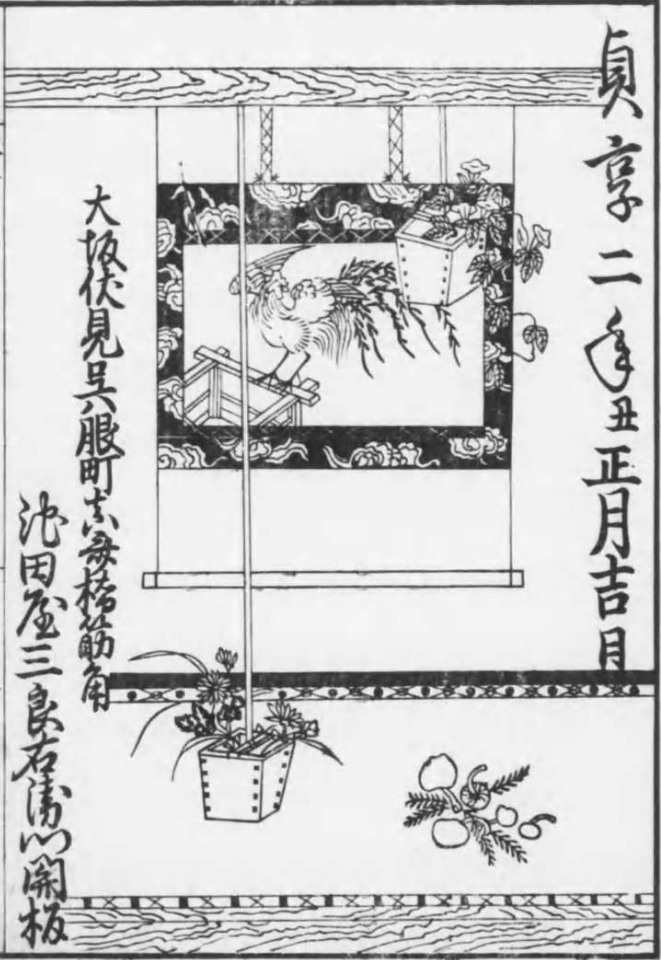 貞享二年丑正月吉日
大坂伏見呉服町真斎橋筋角
池田屋三良右衛門開板